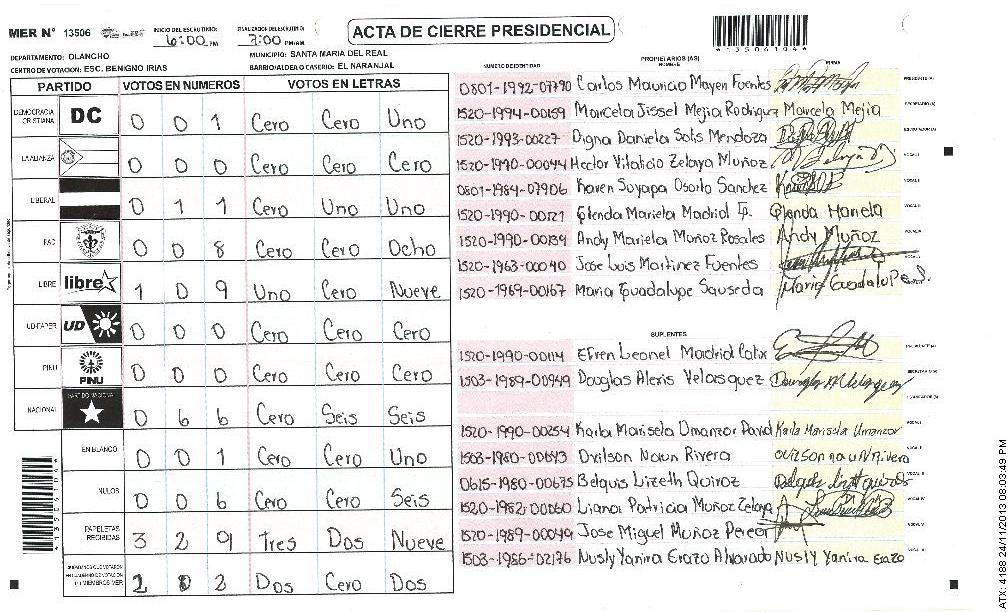 MER N° 13506 INICIO DEL ESCRUTINIO: 6:00 PM FINALIZACION DEL ESCRUTINIO: 7:00 PM/AM ACTA DE CIERRE PRESIDENCIAL
DEPARTAMENTO: OLANCHO MUNICIPIO: SANTA MARIA DEL REAL
CENTRO DE VOTACION: ESC. BENIGNO IRIAS BARRIO/ALDEA O CASERIO: EL NARANJAL
PARTIDO VOTOS EN NUMEROS VOTOS EN LETRAS
DEMOCRACIA CRISTIANA DC 0 0 1 Cero Cero Uno
LA ALIANZA 0 0 0 Cero Cero Cero
LIBERAL 0 1 1 Cero Uno Uno
PAC 0 0 8 Cero Cero Ocho
LIBRE libre 1 0 9 Uno Cero Nueve
UD-FAPER UD 0 0 0 Cero Cero Cero
PINU PINU 0 0 0 Cero Cero Cero
NACIONAL PARTIDO NACIONAL 0 6 6 Cero Seis Seis
EN BLANCO 0 0 1 Cero Cero Uno
NULOS 0 0 6 Cero Cero Seis
PAPELETAS RECIBIDAS 3 2 9 Tres Dos Nueve
CIUDADANOS QUE VOTARON EN CUADERNO DE VOTACION Y MIEMBROS MER 2 0 2 Dos Cero Dos
PROPIETARIOS (AS)
NUMERO DE IDENTIDAD NOMBRE FIRMA
0801-1992-07790 Carlos Mauricio Mayen Fuentes PRESIDENTE (A)
1520-1994-00159 Marcela Jissel Mejia Rodrigue Marcela Mejia SECRETARIO (A)
1520-1993-00227 Digna Daniela Solis Mendoza ESCRUTADOR (A)
1520-1990-00044 Hector Vitalicio Zelaya Muñoz VOCAL I
0801-1984-07906 Karen Suyapa Osorto Sanchez VOCAL II
1520-1990-00121 Glenda Mariela Madrid P. Glenda Mariela
1520-1990-00139 Andy Mariela Muñoz Rosales Andy Muñoz
1520-1963-00040 Jose Luis Martinez Fuentes
1520-1969-00167 Maria Guadalupe Sauseda Maria Guadalupe S.
SUPLENTES
1520-1990-00114 Efren Leonel Madrid Calix PRESIDENTE (A)
1503-1989-00949 Douglas Alexis Velasquez SECRETARIO (A)
ESCRUTADOR (A)
1520-1990-00254 Karla Marisela Umanzor David Karla Marisela Umanzor VOCAL I
1503-1980-00643 Oxilson Noun Rivera
0615-1980-00675 Belquis Lizeth Quiroz
1520-1982-00060 Liana Patricia Muñoz Zelaya
1520-1989-00049 Jose Miguel Muñoz
1503-1986-02176 Nusly Yanira Erazo Alvarado Nusly Yanira Erazo
*13506104*
*13506104*
ATX: 4188 24/11/2013 08:03:49 PM